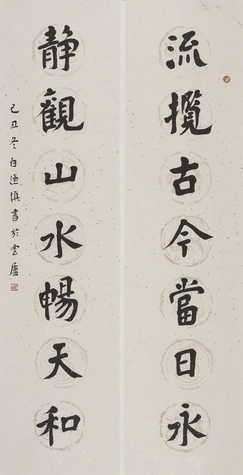 流攬古今當日永
静觀山水暢天和
己丑冬白谦慎書於雲廬